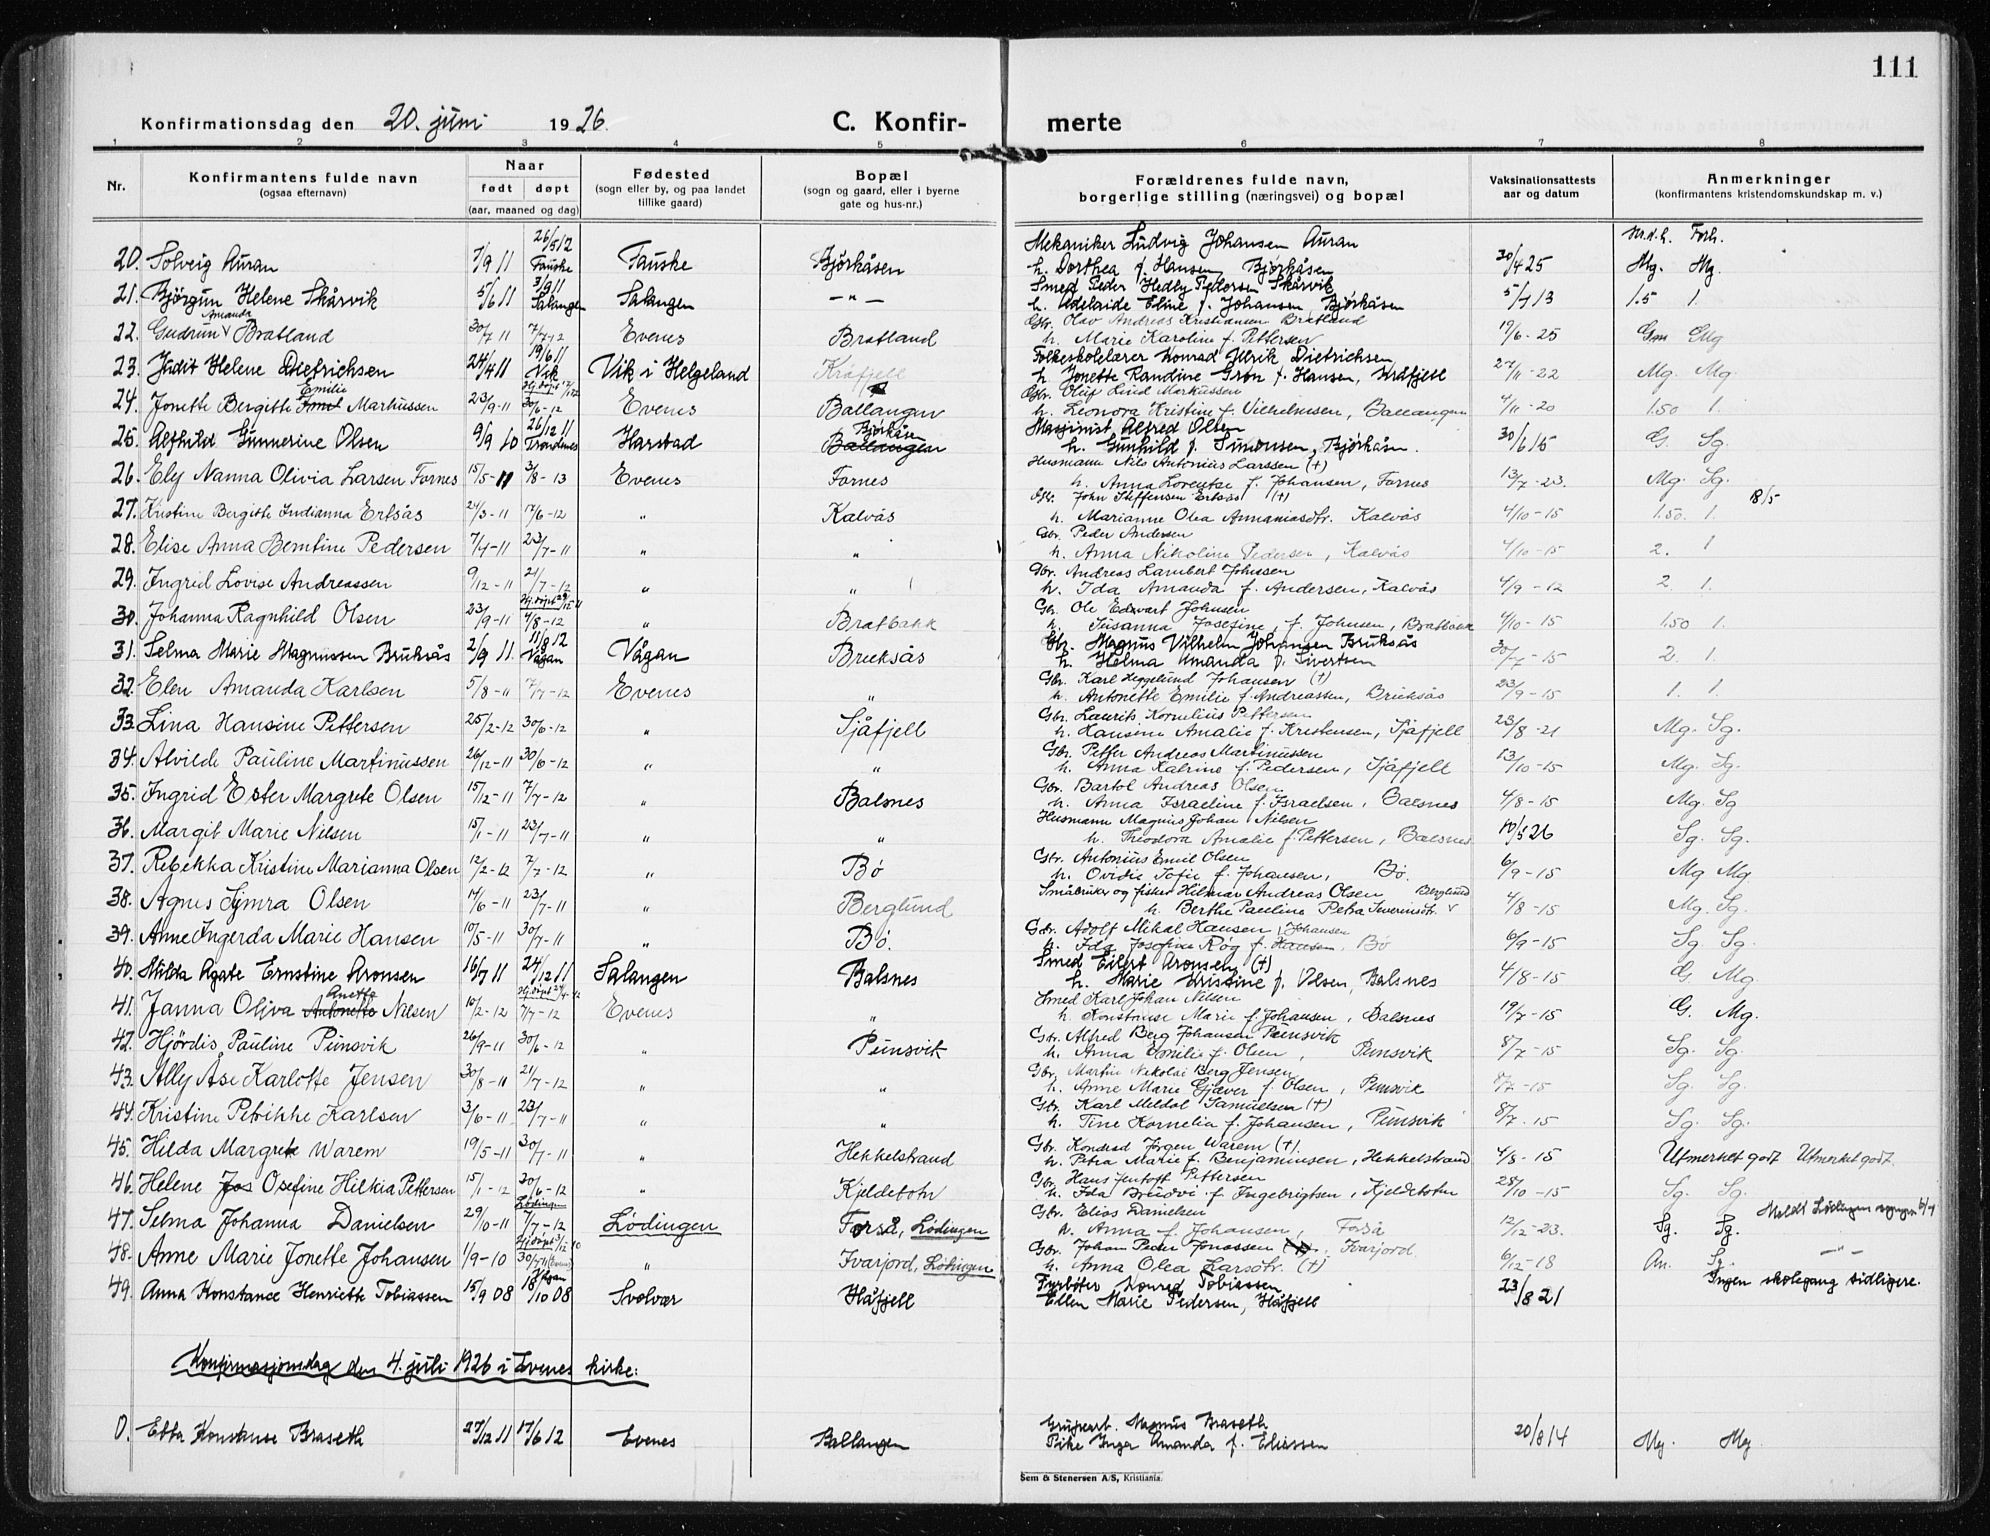 111
Konfirmationsdag den 20. juni 1926. C. Konfir- merte
1 2 3 4 5 6 7 8
Nr. Konfirmantens fulde navn (ogsaa efternavn) Naar født døpt (aar, maaned og dag) Fødested (sogn eller by, og paa landet tillike gaard) Bopæl (sogn og gaard, eller i byerne gate og hus-nr.) Forældrenes fulde navn, borgerlige stilling (næringsvei) og bopæl Vaksinationsattests aar og datum Anmerkninger (konfirmantens kristendomskundskap m. v.)
26/5 12 Mekaniker Ludvig Johansen Auran Forh.
20. Solveig Auran 7/9 11 Fauske Fauske Bjørkåsen h. Dorthea f. Hansen, Bjørkåsen 30/4 25 Mg. Mg.
3/9 11 Smed Peder Hedly Pedersen Skårvik
21. Bjørgun Helene Skårvik 5/6 11 Salangen Salangen — " — h. Adelaide Eline f. Johansen, Bjørkåsen 5/7 13 1.5 1.
Amanda Gbr. Olav Andreas Kristiansen Bratland
22. Gudrun v Bratland 30/7 11 7/7-12 Evenes Bratland h. Marie Karoline f. Pettersen 19/6-25 Gm Mg
19/6 11 Folkeskolelærer Konrad Ulrik Dietrichsen
23. Judit Helene Dietrichsen 24/4 11 Vik Vik i Helgeland Kråfjell h. Jonette Randine Grøn f. Hansen, Kråfjell 27/11-22 Mg. Mg.
Emilie Hj.døpt Gbr. Oluf Lind Markussen
24. Jonette Bergitte Emil Markussen 23/9-11 30/6-12 Evenes Ballangen h. Leonora Kristine f. Vilhelmsen, Ballangen 4/11-20 1.50 1.
26/12 11 Bjørkåsen Maskinist Alfred Olsen
25. Alfhild Gunnerine Olsen 9/9 10 Trondenes Harstad Ballangen h. Gunhild f. Simonsen, Bjørkåsen. 30/6 15 G. Sg.
Husmann Nils Antonius Larssen (+)
26. Ely Nanna Olivia Larsen Fornes 15/5-11 3/8-13 Evenes Fornes h. Anna Lorentse f. Johansen, Fornes 13/7-23. Mg. Sg.
Gbr. John Steffensen Ertsås (+) 18/5
27. Kristine Bergitte Indianna Ertsås 24/3-11 17/6-12 " Kalvås h. Marianne Olea Annaniasdtr. Kalvås 4/10-15 1.50. 1.
Gbr. Peder Andersen
28. Elise Anna Berntine Pedersen 7/4-11 23/7-11 " " h. Anna Nikoline Pedersen, Kalvås 4/10-15 2. 1
Gbr. Andreas Lambert Johnsen
29. Ingrid Lovise Andreassen 9/12-11 21/7-12 " " h. Ida Amanda f. Andersen, Kalvås 4/9-12 2 1.
Hj.døpt Gbr. Ole Edvart Johnsen
30. Johanna Ragnhild Olsen 23/9-11 4/8-12 " Bratbakk h. Susanna Josefine, f. Johnsen, Bratbakk 4/10-15 1.50 1.
11/8 12 Gbr. Magnus Vilhelm Johansen Bruksås
31. Selma Marie Magnussen Bruksås 2/9 11. Vågan Vågan Bruksås h. Helma Amanda f. Sivertsen 30/7-15 2. 1.
Gbr. Karl Heggelund Johansen (+)
32. Elen Amanda Karlsen 5/8-11 7/7-12 Evenes " h. Antonette Emilie f. Andreassen, Bruksås 23/9-15 1. 1.
Gbr. Laurits Kornelius Pettersen
33. Lina Hansine Pettersen 25/2-12 30/6-12 " Sjåfjell h. Hansine Amalie f. Kristensen, Sjåfjell 23/8-21 Mg. Sg.
Gbr. Petter Andreas Martinussen
34. Alvilde Pauline Martinussen 26/12-11 30/6-12 " " h. Anna Katrine f. Pedersen, Sjåfjell 13/10-15 Mg. Sg.
Gbr. Bartol Andreas Olsen
35. Ingrid Ester Margrete Olsen 15/12-11 7/7-12 " Balsnes h. Anna Israeline f. Israelsen, Balsnes 4/8-15 Mg. Sg
Husmann Magnus Johan Nilsen
36. Margit Marie Nilsen 15/1-11 23/7-11 " " h. Theodora Amalie f. Pettersen, Balsnes 10/5 26 Sg. Sg.
Gbr. Antonius Emil Olsen
37. Rebekka Kristine Marianna Olsen 12/2-12 7/7-12 " Bø h. Ovidie Sofie f. Johansen, Bø. 6/9-15 Mg Mg.
Småbruker og fisker Hilmar Andreas Olsen Berglund
38. Agnes Synnra Olsen 14/6-11 23/7-11 " Berglund h. Berthe Pauline Petra Severinsdtr. v 4/8-15 Mg. Sg.
Gbr. Adolf Mikal Hansen Johansen
39. Anne Ingerda Marie Hansen 10/5-11 30/7-11 " Bø. h. Ida Josefine Røg f. Hansen, Bø 6/9-15 Sg. Sg.
Smed Eilert Aronsen (+)
40. Milda Agate Ernstine Aronsen 16/7 11 24/12 11 Salangen Balsnes h. Marie Kristine f. Olsen, Balsnes 4/8-15 G. Mg.
Anette Hj.døpt Smed Karl Johan Nilsen
41. Janna Oliva Antonette Nilsen 10/2-12 7/7-12 Evenes " h. Konstanse Marie f. Johansen, Balsnes 19/7-15 G. Mg.
Gbr. Alfred Berg Johansen Punsvik
42. Hjørdis Pauline Punsvik 26/9-11 30/6-12 " Punsvik h. Anna Emilie f. Olsen, Punsvik 8/7-15 Sg. Sg.
Gbr. Martin Nikolai Berg Jensen
43. Ally Åse Karlotte Jensen 30/8-11 21/7-12 " " h. Anne Marie Gjæver f. Olsen, Punsvik 8/7-15 Sg. Sg.
Gbr. Karl Meldal Samuelsen (+)
44. Kristine Petrikke Karlsen 3/6-11 23/7-11 " " h. Tine Kornelia f. Johansen, Punsvik 8/7.15 Sg. Sg.
Gbr. Kondrad Jørgen Warem (+).
45. Hilda Margrete Warem 19/5-11 30/7-11 " Hekkelstrand h. Petra Marie f. Benjaminsen, Hekkelstrand 4/8-15 Utmerket godt Utmerket godt.
Gbr. Hans Jentoft Pettersen
46. Helene Jos Osefine Hilkia Pettersen 15/1-12 30/6-12 " Kjeldebotn h. Ida Brudvi f. Ingebrigtsen, Kjeldebotn 28/10-15 Sg. Sg.
Lødingen Gbr. Elias Danielsen Meldt Lødingen
47. Selma Johanna Danielsen 29/10-11 7/7-12 Lødingen Forså, Lødingen h. Anna f. Johansen, Forså 12/12-23. Sg. Sg.
Hj.døpt Gbr. Johan Peder Jonassen (+), Ivarjord.
48. Anne Marie Jonette Johansen 1/9-10 30/7-11 (Evenes) " Ivarjord, Lødingen h. Anna Olea Larsdtr. (+) 6/12-18 An. Sg. — " —
Vågan Fyrbøter Konrad Tobiassen Ingen skolegang tidligere.
49. Anna Konstance Henriette Tobiassen 15/9 08 18/10 08 Svolvær Håfjell Ellen Marie Pedersen, Håfjell 23/8 21
Konfirmasjonsdag den 4. juli 1926 i Evenes kirke:
Grubearb. Magnus Braseth
0. Ebba Konstanse Braseth 27/12 11 17/6 12 Evenes Ballangen Pike Inga Amanda f. Eliassen 20/8 14 Mg. Mg
Sem & Stenersen A/S, Kristiania.